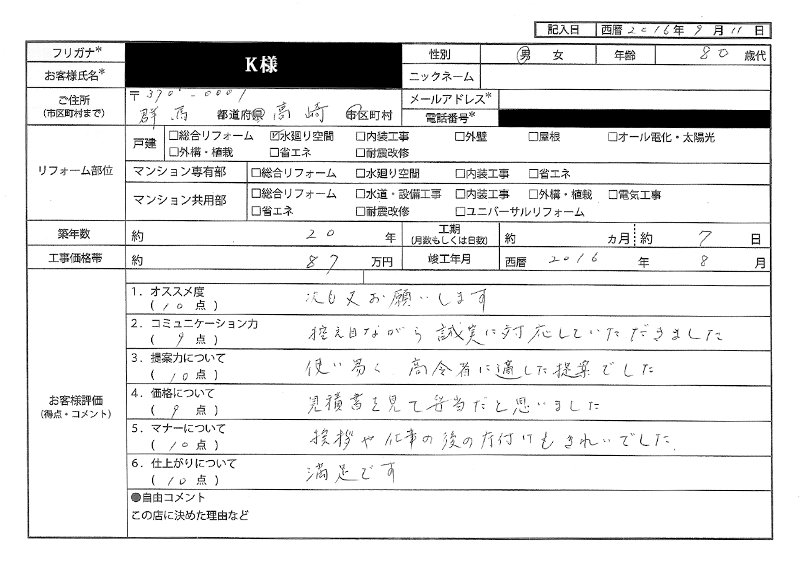 記入日 西暦 2016年 9月 11日
フリガナ* K様 性別 男 女 年齢 80 歳代
お客様氏名* ニックネーム
ご住所 〒370-0001 メールアドレス*
(市区町村まで) 群馬 都道府県 高崎 市区町村 電話番号*
リフォーム部位 戸建 □総合リフォーム ☑水廻り空間 □内装工事 □外壁 □屋根 □オール電化・太陽光
□外構・植栽 □省エネ □耐震改修
マンション専有部 □総合リフォーム □水廻り空間 □内装工事 □省エネ
マンション共用部 □総合リフォーム □水道・設備工事 □内装工事 □外構・植栽 □電気工事
□省エネ □耐震改修 □ユニバーサルリフォーム
築年数 約 20 年 工期 (月数もしくは日数) 約 ヵ月 約 7 日
工事価格帯 約 87 万円 竣工年月 西暦 2016 年 8 月
お客様評価
(得点・コメント)
1．オススメ度
(10点) 次も又お願いします
2．コミュニケーション力
(9点) 控え目ながら誠実に対応していただきました
3．提案力について
(10点) 使い易く、高令者に適した提案でした
4．価格について
(9点) 見積書を見て妥当だと思いました
5．マナーについて
(10点) 挨拶や仕事の後の片付けもきれいでした
6．仕上がりについて
(10点) 満足です
●自由コメント
この店に決めた理由など